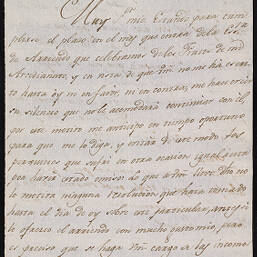 Muy Sr. mio: Estando para cum
plirse el plazo en el mes que entra de la Escra.
de Arriendo que celebramos de los frutos de mi
Arcedianato, y en vista de que Vm no me ha escri
to hasta hoy ni en favor, ni en contra, me hace creer
su silencio que no le acomodará continuar con él,
por este motivo me anticipo en tiempo oportuno
para que me lo diga, y evitar de este modo los
perjuicios que sufrí en otra ocasion igual
por haber estado omiso
lo motiva ninguna resolucion que haya tomado
hasta el dia de oy sobre este particular, antes si
le ofrezco el arriendo con mucho gusto, pero
es preciso que se haga Vm cargo a las incomo